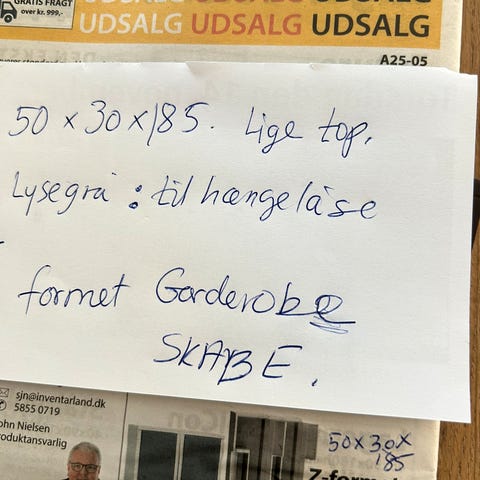 GRATIS FRAGT
over kr. 999,-
UDSALG UDSALG UDSALG
UDSALG UDSALG UDSALG
A25-05
50 x 30 x 185. Lige top.
Lysegrå : til hængelåse
formet Garderobe
SKABE.
sjn@inventarland.dk
5855 0719
John Nielsen
roduktansvarlig
50 x 30 x
185
Z-form